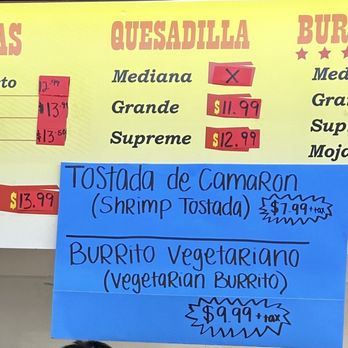 AS
QUESADILLA
BUR
Mediana X
Grande $11.99
Supreme $12.99
12.99
$13.99
Med
Gra
Sup
Moja
TOSTADA de CAMARON
(SHRIMP TOSTADA) $7.99+tax
BURRITO VEGETARIANO
(VEGETARIAN BURRITO)
$9.99+tax